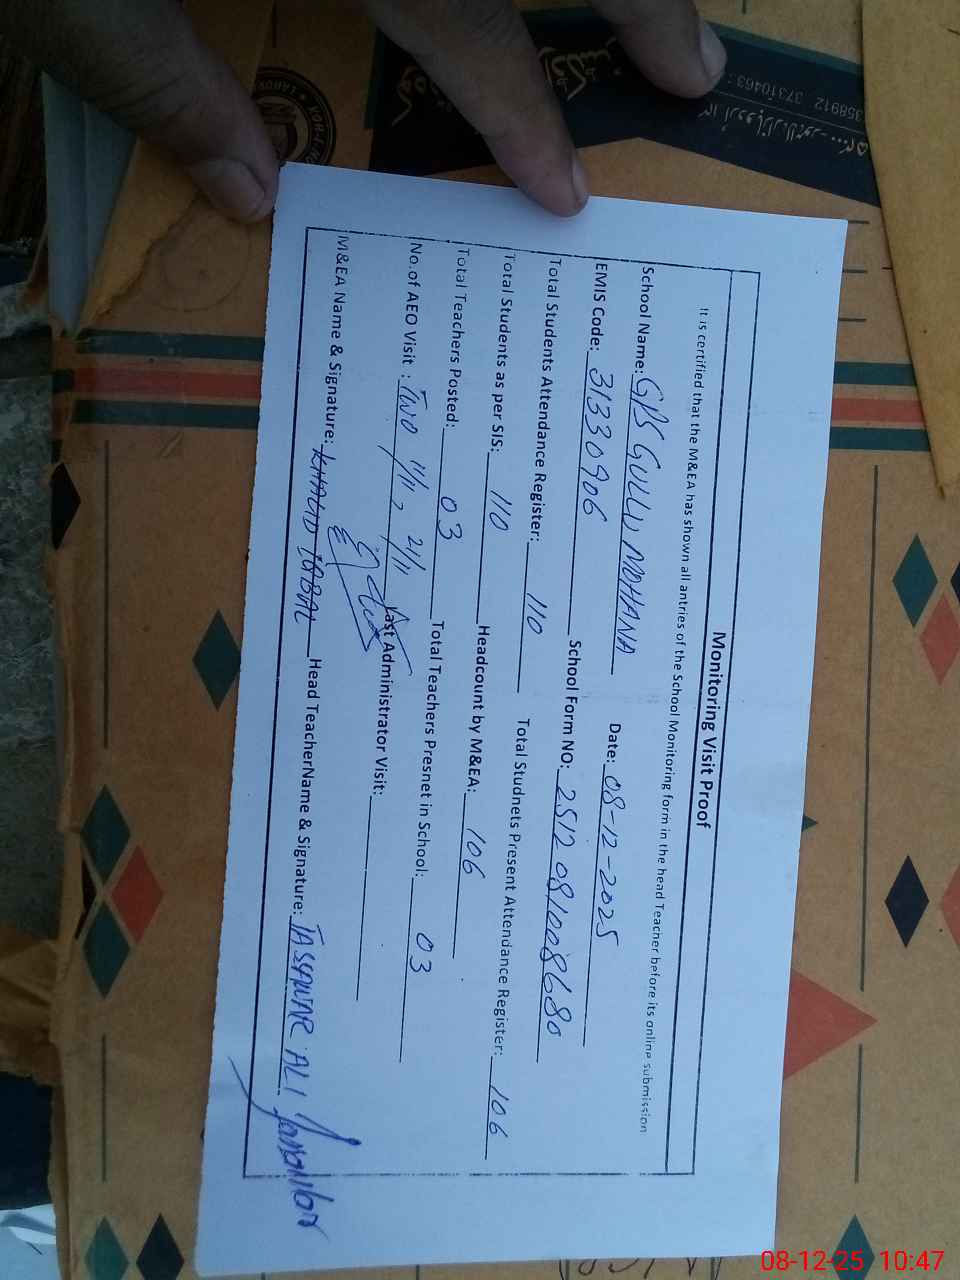 Monitoring Visit Proof
It is certified that the M&EA has shown all antries of the School Monitoring form in the head Teacher before its online submission
School Name: GPS GULLU MOHANA Date: 08-12-2025
EMIS Code: 31330906 School Form NO: 2512081008680
Total Students Attendance Register: 110 Total Studnets Present Attendance Register: 106
Total Students as per SIS: 110 Headcount by M&EA: 106
Total Teachers Posted: 03 Total Teachers Presnet in School: 03
No.of AEO Visit : Two 1/11, 21/11 Last Administrator Visit:
M&EA Name & Signature: KHALID IQBAL Head TeacherName & Signature: TASAWAR ALI
358912 37310463:
LAHORE
08-12-25 10:47